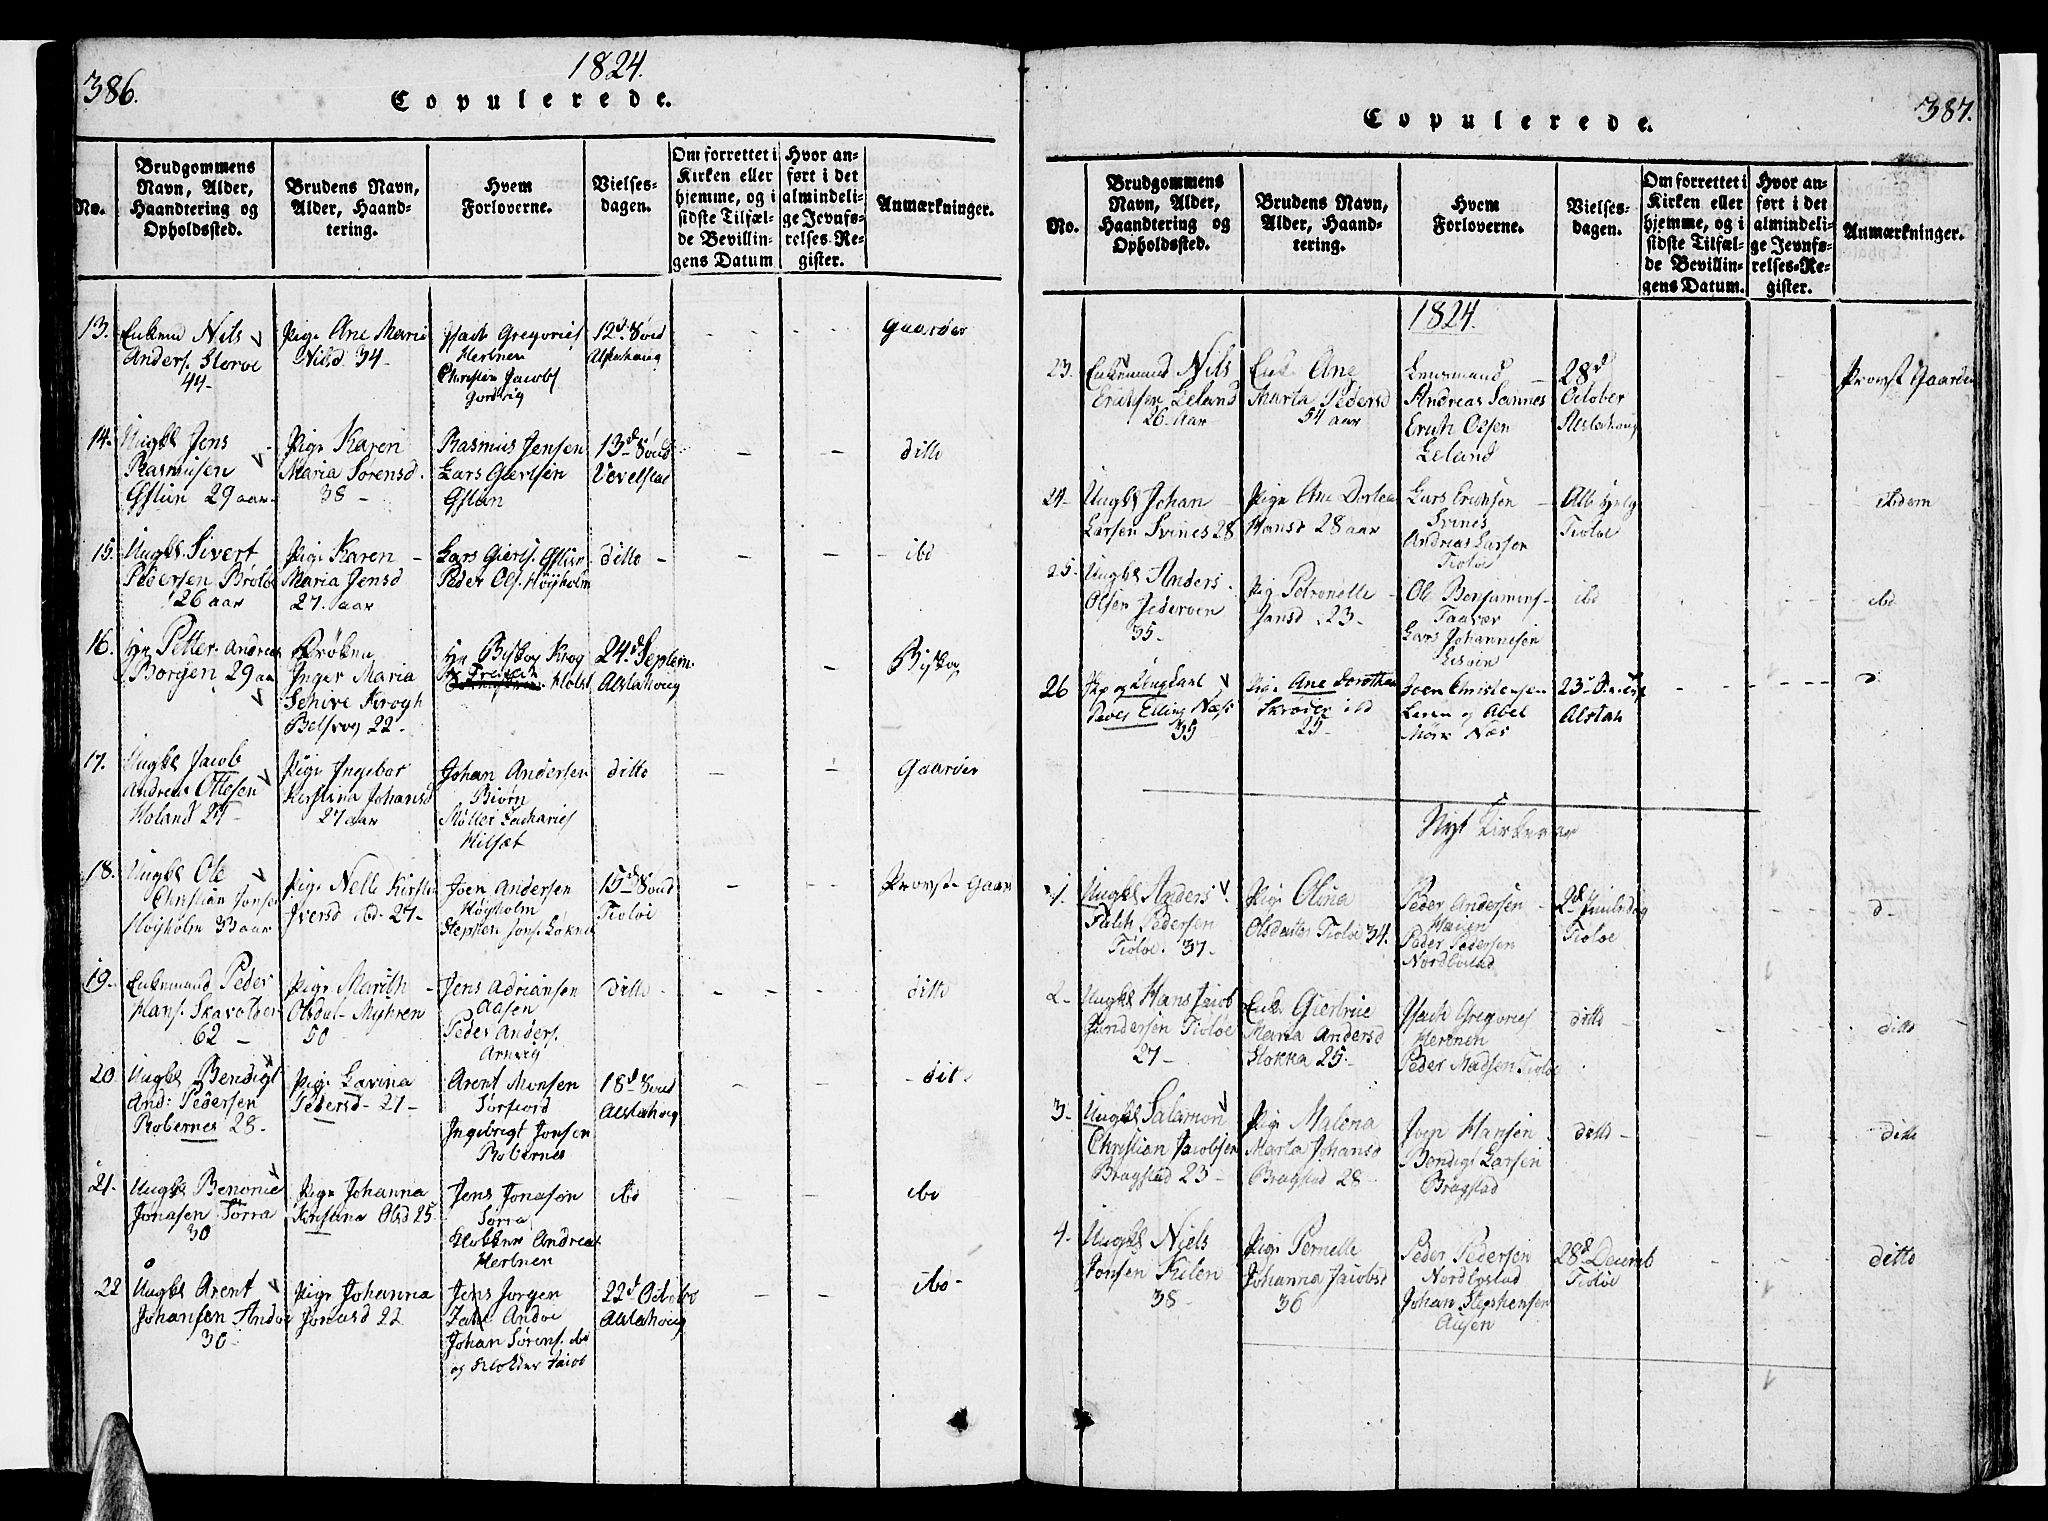 386.
1824.
Copulerede.
No.
Brudgommens
Navn, Alder,
Haandtering og
Opholdssted.
Brudens Navn,
Alder, Haand-
tering.
Hvem
Forloverne.
Vielses-
dagen.
Om forrettet i
Kirken eller
hjemme, og i
sidste Tilfæl-
de Bevillin-
gens Datum
Hvor an-
ført i det
almindeli-
ge Jevnfø-
relses-Re-
gister.
Anmærkninger.
13.
Enkemd Nils
Anders. Storve
44-
Pige Ane Marie
Nilsd 34
Isach Gregories
Herbnen
Christen Jacobs
12d
Alstahoug
Gaarder
14.
Ungkl Jens
Rasmusen
29 aar
Pige Karen
Maria Sorensd.
38 -
Rasmus Jensen
Lars Giertsen
13d
Vevelstad
ditto
15.
Ungkl. Sivert
Pedersen
26 aar
Pige Karen -
Maria Jensd
27. aar
Lars Gierts.
Peder Ols. Höyholm
ditto -
ibd
16.
Hr Petter Andreas
Borgen 29 aar
Frøken
Inger Maria
Schive Krogh
22 -
Hr Biskop Krog
Holst
24d Septem.
Alstahoug
Biskop
17.
Ungkl Jacob
Andreas Ottesen
Holand 24
Pige Ingebor
Kirstina Johansd
27 aar
Johan Andersen
Biörn
Möller Zacharies
Hilsæt
ditto
Gaarder
18.
Ungkl Ole
Christian Jonsen
Höyholm 33 aar
Pige Nelle Kirstin
Iversd ibd - 27 -
Joen Andersen
Höyholm
Stephen Jons.
15d
Tiöloe
Provst Gaar
19.
Enkemand Peder
Hans.
62 -
Pige Marith -
Olsdat - Myhren
50
Jens Adriansen
Aasen
Peder Anders.
Arnvig
ditto -
ditto
20.
Ungkl Bendigt
And: Pedersen
Robernes 28 -
Pige Lavina
Pedersd - 27 -
Arent Monsen
Sörfiord
Ingebrigt Jonsen
Robernes
18d
Alstahoug
- dit -
21.
Ungkl Benonie
Jonasen Sörra
30
Pige Johanna
Kirstina Olsd 25
Jens Jonasen
Sörra
Klokker Andreas
Herbnen
ibd
ibd
22
Ungkl Arent
Johansen Andoe
30 -
Pige Johanna
Jonasd 22
Jens Jorgen
Andoe
Johan Sörens. ibd
og Klokker Jacob
22d Octobo
Alstahoug
ibd -
387.
Copulerede.
No.
Brudgommens
Navn, Alder,
Haandtering og
Opholdssted.
Brudens Navn,
Alder, Haand-
tering.
Hvem
Forloverne.
Vielses-
dagen.
Om forrettet i
Kirken eller
hjemme, og i
sidste Tilfæl-
de Bevillin-
gens Datum.
Hvor an-
ført i det
almindeli-
ge Jevnfø-
relses-Re-
gister.
Anmærkninger.
1824.
23.
Enkemand Nils
Erichsen Leland
26 Aar
Enke Ane
Marta Pedersd
54 aar
Lensmand
Andreas Sannes
Erich Olsen
Leland
28d
October
Alstahoug
Provst Gaarden
24-
Ungkl Johan
Larsen Svines 28
Pige Ane Dortea
Hansd 28 aar
Lars Erichsen
Svines
Andreas Larsen
Tioloe
Alle Helg
Tioloe
ibidem
25.
Ungkl Anders
Olsen
35 -
Pig Petronelle
Jansd. 23 -
Ole Benjamins
Lars Johannesen
ibd
ibd
26
Skp og Ungkarl
Peder Elling Næss
35
Pige Ane Dorothea
ibd
25
Joen Christensen
og Abel
Mörk Næs
Alstah
d
Nyt Kirkeaar
1.
Ungkl Anders
Falch Pedersen
Tiöloe. 37 -
Pige Olina
Olsdatter Tioloe 34.
Peder Andersen
Peder Pedersen
Nordbostad
2d Juuledag
Tioloe
d -
2-
Ungkl Hans Jacob
Gundersen Tioloe
27 -
Enke Giertrue
Maria Andersd
Stokka 25 -
Isach Gregories
Herbnen
Peder Madsen Tioloe
ditto
ditto
3-
Ungkl Salamon
Christian Jacobsen
Bragstad 23 -
Pige Malena
Marta Johansd
Bragstad 28 -
Joen Hansen
Bendigt Larsen
Bragstad
ditto -
ditto
4.
Ungkl Niels
Jonsen Kulen
38 -
Pige Pernelle
Johanna Jacobsd
36
Peder Pedersen
Nordbostad
Johan Stephensen
Ausen
28d Decemb
Tioloe
ditto